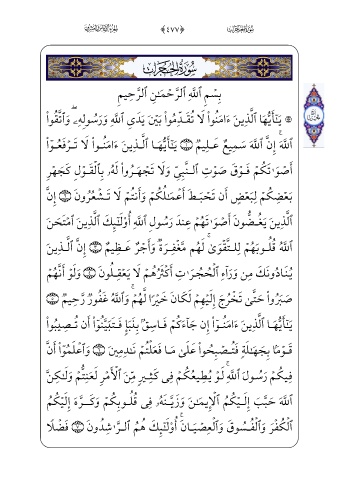 سُورَةُ الْحُجُرَاتِ ﴿٤٧٧﴾
سُورَةُ الحُجُرَات
بِسْمِ ٱللَّهِ ٱلرَّحْمَـٰنِ ٱلرَّحِيمِ
۞ يَـٰٓأَيُّهَا ٱلَّذِينَ ءَامَنُوا۟ لَا تُقَدِّمُوا۟ بَيْنَ يَدَىِ ٱللَّهِ وَرَسُولِهِۦ ۖ وَٱتَّقُوا۟
ٱللَّهَ ۚ إِنَّ ٱللَّهَ سَمِيعٌ عَلِيمٌ ۝ يَـٰٓأَيُّهَا ٱلَّذِينَ ءَامَنُوا۟ لَا تَرْفَعُوٓا۟
أَصْوَٰتَكُمْ فَوْقَ صَوْتِ ٱلنَّبِىِّ وَلَا تَجْهَرُوا۟ لَهُۥ بِٱلْقَوْلِ كَجَهْرِ
بَعْضِكُمْ لِبَعْضٍ أَن تَحْبَطَ أَعْمَـٰلُكُمْ وَأَنتُمْ لَا تَشْعُرُونَ ۝ إِنَّ
ٱلَّذِينَ يَغُضُّونَ أَصْوَٰتَهُمْ عِندَ رَسُولِ ٱللَّهِ أُو۟لَـٰٓئِكَ ٱلَّذِينَ ٱمْتَحَنَ
ٱللَّهُ قُلُوبَهُمْ لِلتَّقْوَىٰ ۚ لَهُم مَّغْفِرَةٌ وَأَجْرٌ عَظِيمٌ ۝ إِنَّ ٱلَّذِينَ
يُنَادُونَكَ مِن وَرَآءِ ٱلْحُجُرَٰتِ أَكْثَرُهُمْ لَا يَعْقِلُونَ ۝ وَلَوْ أَنَّهُمْ
صَبَرُوا۟ حَتَّىٰ تَخْرُجَ إِلَيْهِمْ لَكَانَ خَيْرًا لَّهُمْ ۚ وَٱللَّهُ غَفُورٌ رَّحِيمٌ ۝
يَـٰٓأَيُّهَا ٱلَّذِينَ ءَامَنُوٓا۟ إِن جَآءَكُمْ فَاسِقٌۢ بِنَبَإٍ فَتَبَيَّنُوٓا۟ أَن تُصِيبُوا۟
قَوْمًۢا بِجَهَـٰلَةٍ فَتُصْبِحُوا۟ عَلَىٰ مَا فَعَلْتُمْ نَـٰدِمِينَ ۝ وَٱعْلَمُوٓا۟ أَنَّ
فِيكُمْ رَسُولَ ٱللَّهِ ۚ لَوْ يُطِيعُكُمْ فِى كَثِيرٍ مِّنَ ٱلْأَمْرِ لَعَنِتُّمْ وَلَـٰكِنَّ
ٱللَّهَ حَبَّبَ إِلَيْكُمُ ٱلْإِيمَـٰنَ وَزَيَّنَهُۥ فِى قُلُوبِكُمْ وَكَرَّهَ إِلَيْكُمُ
ٱلْكُفْرَ وَٱلْفُسُوقَ وَٱلْعِصْيَانَ ۚ أُو۟لَـٰٓئِكَ هُمُ ٱلرَّٰشِدُونَ ۝ فَضْلًا